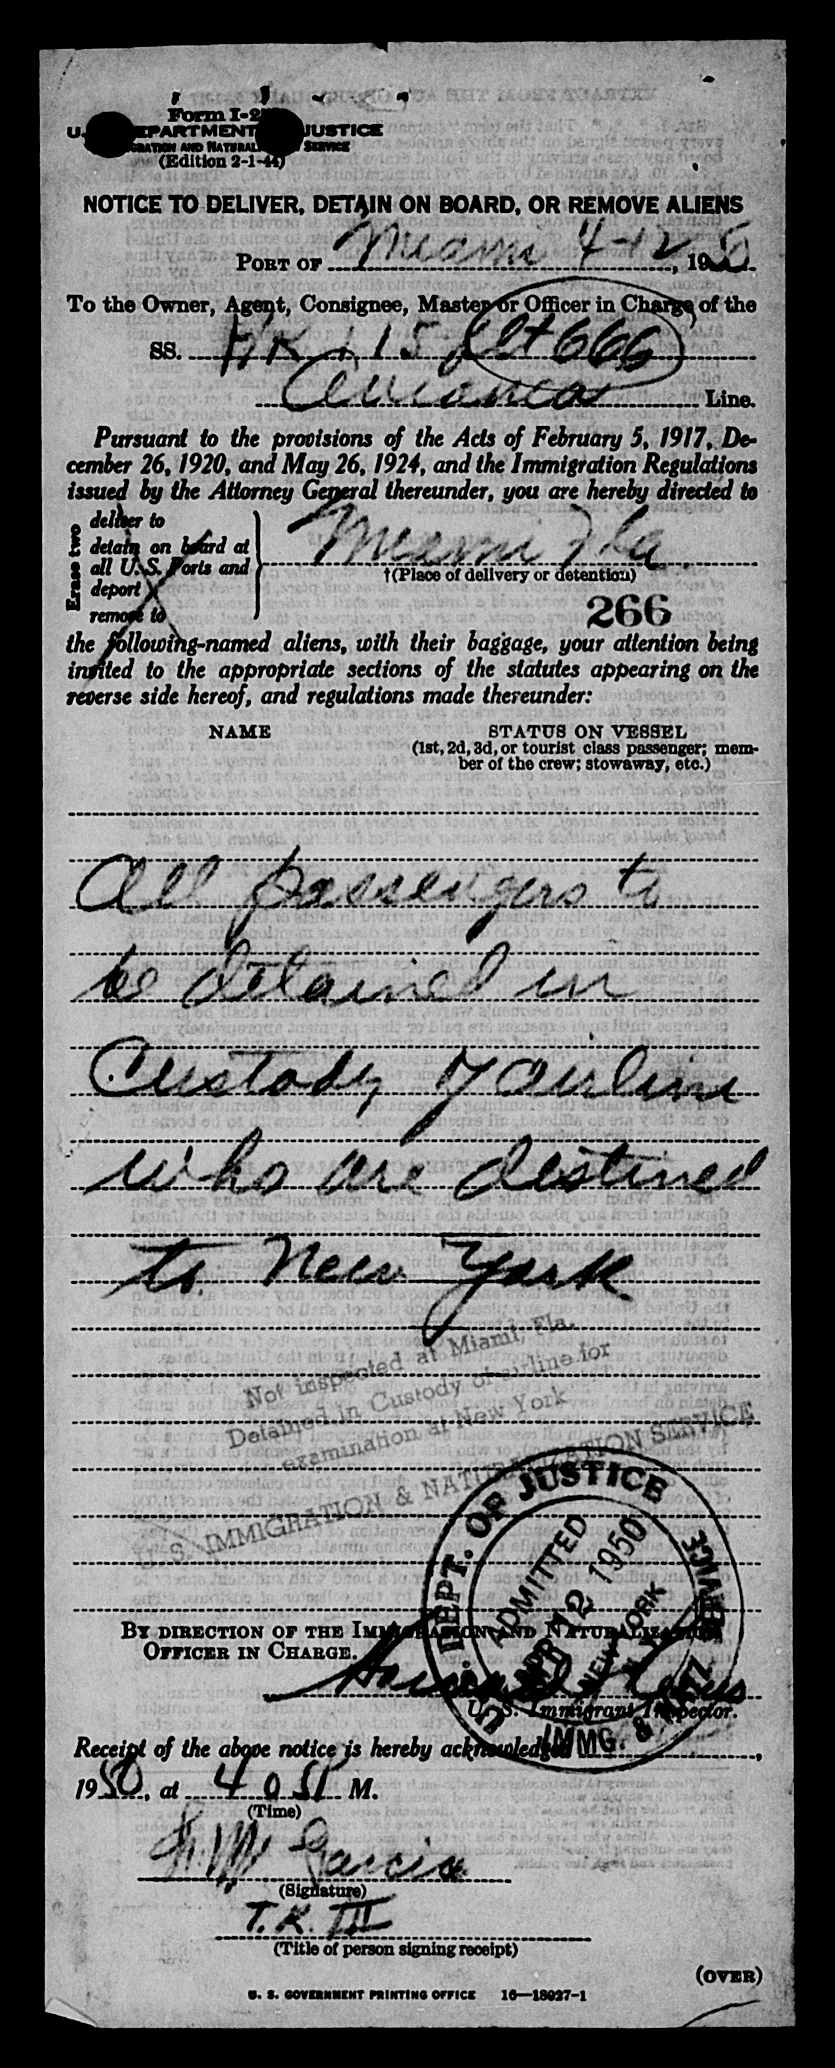 Form I-2
U. DEPARTMENT JUSTICE
GRATION AND NATURAL SERVICE
(Edition 2-1-44)
NOTICE TO DELIVER, DETAIN ON BOARD, OR REMOVE ALIENS
PORT OF Miami 4-12, 1950
To the Owner, Agent, Consignee, Master or Officer in Charge of the
SS. HK 115 flt 666
Avianca Line.
Pursuant to the provisions of the Acts of February 5, 1917, De-
cember 26, 1920, and May 26, 1924, and the Immigration Regulations
issued by the Attorney General thereunder, you are hereby directed to
Erase two
deliver to
detain on board at
all U.S. Ports and
deport
remove to
Miami Fla.
†(Place of delivery or detention)
266
the following-named aliens, with their baggage, your attention being
invited to the appropriate sections of the statutes appearing on the
reverse side hereof, and regulations made thereunder:
NAME STATUS ON VESSEL
(1st, 2d, 3d, or tourist class passenger; mem-
ber of the crew; stowaway, etc.)
All passengers to
be detained in
Custody of airline
who are destined
to New York
Not inspected at Miami, Fla.
Detained in Custody of airline for
examination at New York
U.S. IMMIGRATION & NATURALIZATION SERVICE
DEPT. OF JUSTICE
ADMITTED
APR 12 1950
NEW YORK
IMMG. & NATZ SERVICE
BY DIRECTION OF THE IMMIGRATION AND NATURALIZATION
OFFICER IN CHARGE.
U. S. Immigrant Inspector.
Receipt of the above notice is hereby acknowledged
1950, at 4 05P M.
(Time)
Garcia
(Signature)
T.R. III
(Title of person signing receipt)
(OVER)
U. S. GOVERNMENT PRINTING OFFICE 16—18027-1